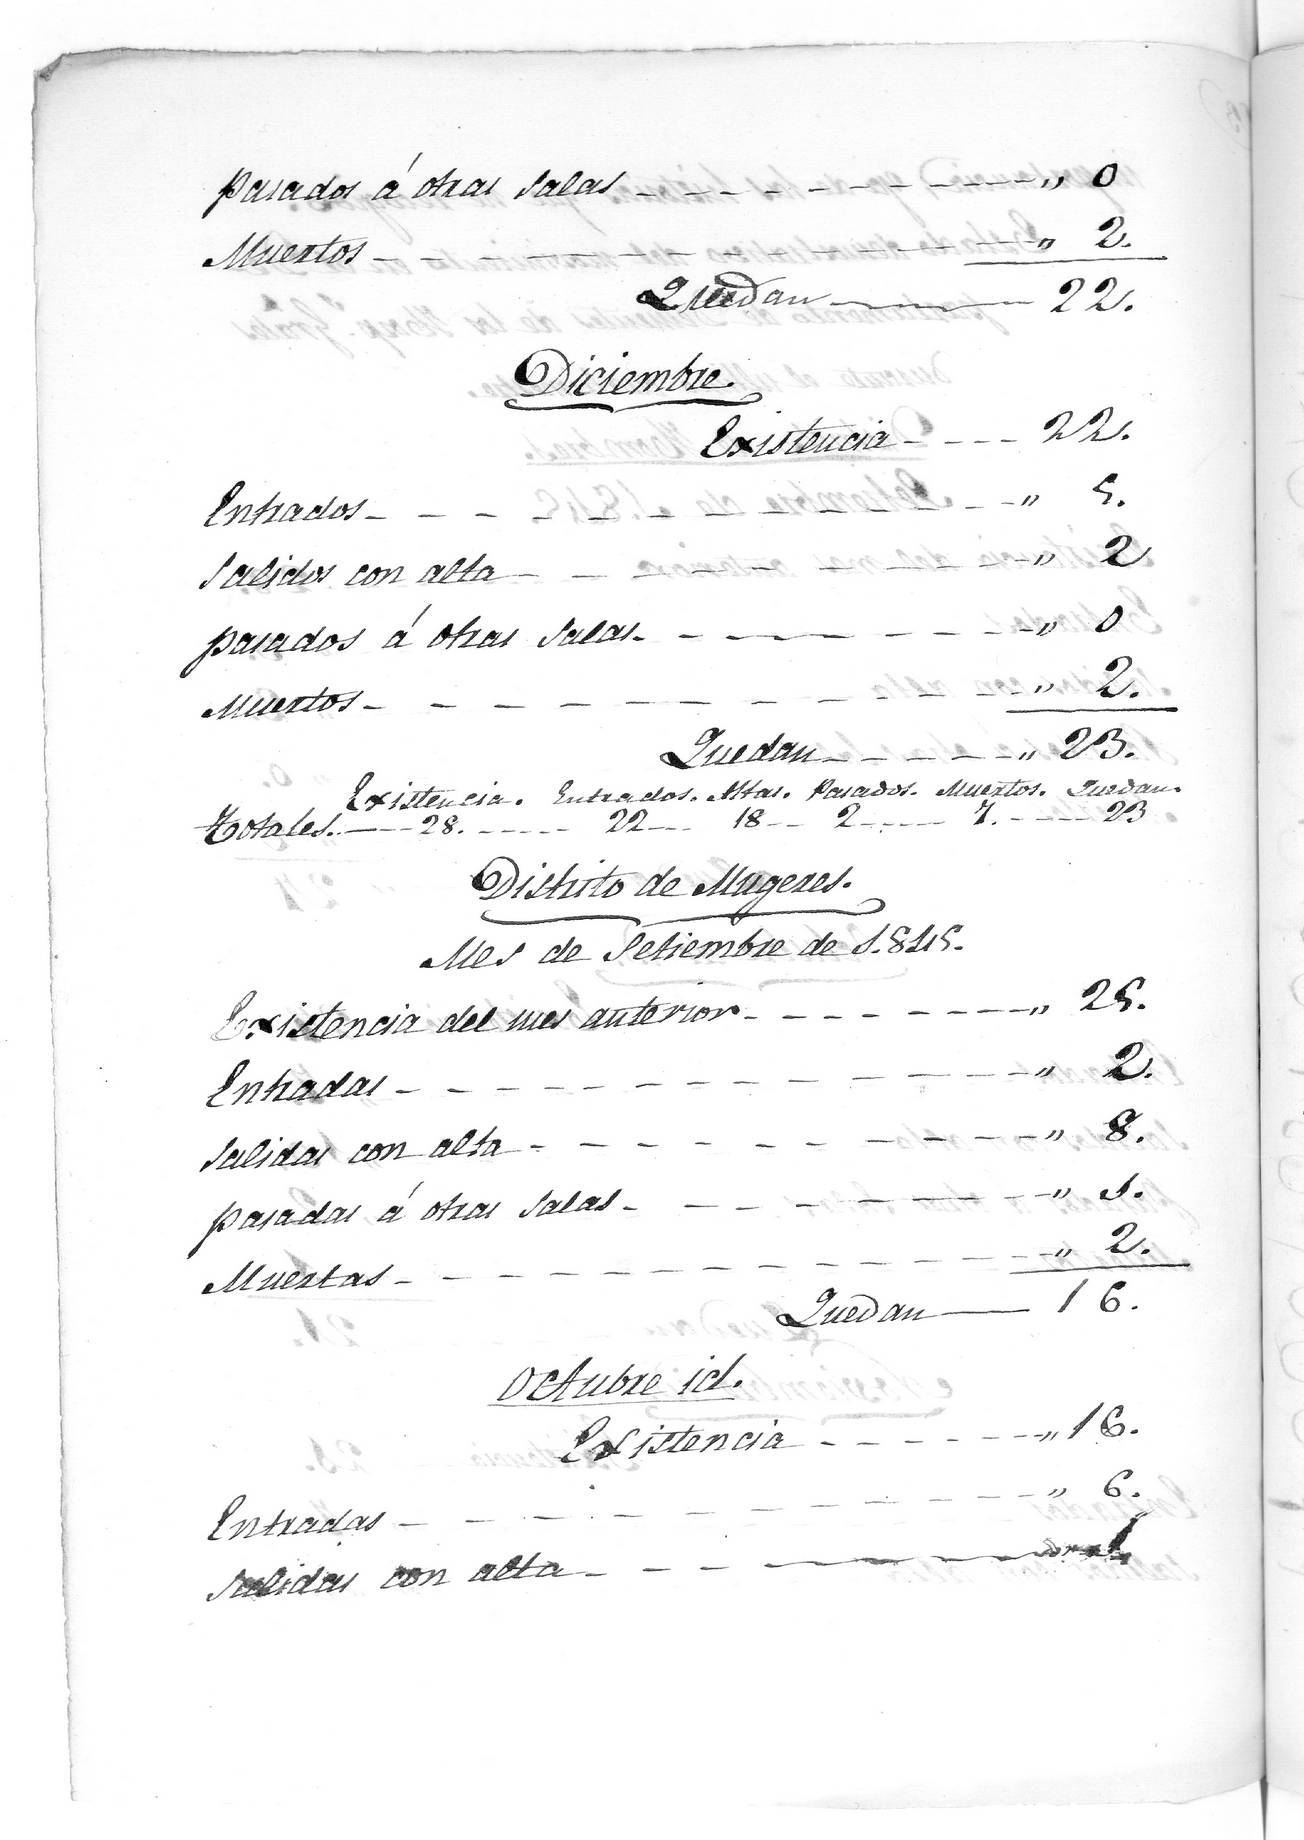 Pasados á otras salas - - - - - - - - - - - „ 0
Muertos - - - - - - - - - - - - - - „ 2.
Quedan ——— 22.
Diciembre.
Existencia - - - - 22.
Entrados - - - - - - - - - - - - - „ 5.
Salidos con alta - - - - - - - - - - „ 2
Pasados á otras salas. - - - - - - - - „ 0
Muertos - - - - - - - - - - - - - „ 2.
Quedan - - - - - - „ 23.
Existencia. Entrados. Altas. Pasados. Muertos. Quedan.
Totales. - - - 28. - - - - - 22 - - - 18 - - 2 - - - - 7. - - - - 23
Distrito de Mugeres.
Mes de Setiembre de 1.845.
Existencia del mes anterior - - - - - - - - „ 25.
Entradas - - - - - - - - - - - - - „ 2.
Salidas con alta - - - - - - - - - - „ 8.
Pasadas á otras salas - - - - - - - - „ 1.
Muertas - - - - - - - - - - - - - „ 2.
Quedan —— 16.
Octubre id.
Existencia - - - - - - - „ 16.
Entradas - - - - - - - - - - - - „ 6.
Salidas con alta - - - - - - - - - 1